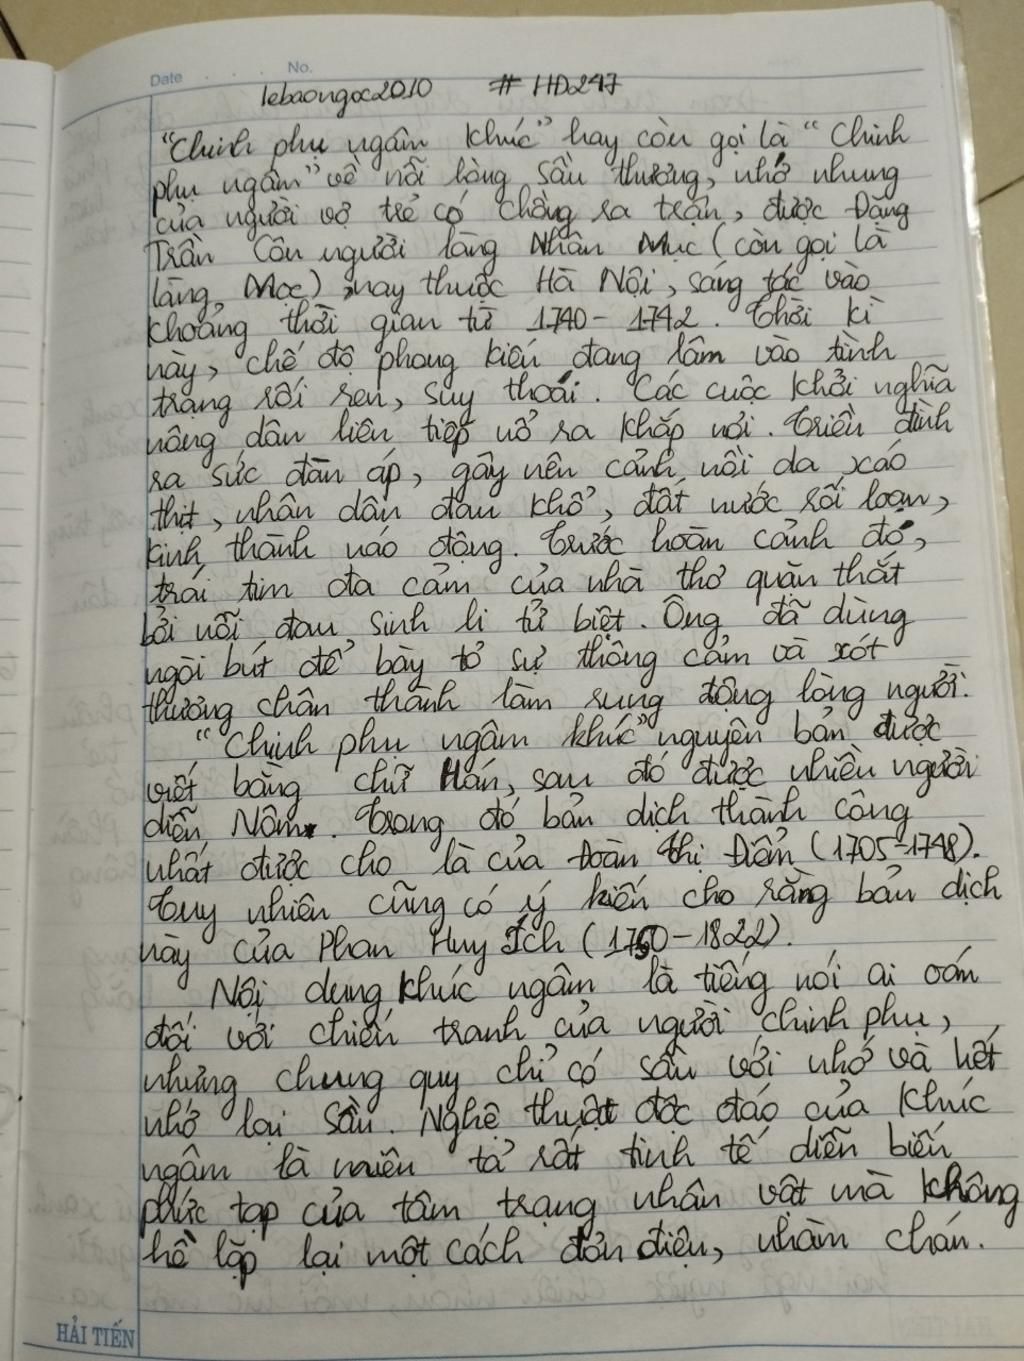 Date . . . No.
lebaongoc2010 # HD247
"Chinh phụ ngâm khúc" hay còn gọi là "Chinh
phụ ngâm" về nỗi lòng sầu thương, nhớ nhung
của người vợ trẻ có chồng ra trận, được Đặng
Trần Côn người làng Nhân Mục (còn gọi là
làng Mọc) nay thuộc Hà Nội, sáng tác vào
khoảng thời gian từ 1740 - 1742. Thời kì
này, chế độ phong kiến đang lâm vào tình
trạng rối ren, suy thoái. Các cuộc khởi nghĩa
nông dân liên tiếp nổ ra khắp nơi. Triều đình
ra sức đàn áp, gây nên cảnh nồi da xáo
thịt, nhân dân đau khổ, đất nước rối loạn,
kinh thành náo động. Trước hoàn cảnh đó,
trái tim đa cảm của nhà thơ quặn thắt
bởi nỗi đau sinh li tử biệt. Ông đã dùng
ngòi bút để bày tỏ sự thông cảm và xót
thương chân thành làm rung động lòng người.
"Chinh phụ ngâm khúc" nguyên bản được
viết bằng chữ Hán, sau đó được nhiều người
diễn Nôm. Trong đó bản dịch thành công
nhất được cho là của Đoàn Thị Điểm (1705-1748).
Tuy nhiên cũng có ý kiến cho rằng bản dịch
này của Phan Huy Ích (1750-1822).
Nội dung khúc ngâm là tiếng nói ai oán
đối với chiến tranh của người chinh phụ,
nhưng chung quy chỉ có sầu với nhớ và hết
nhớ lại sầu. Nghệ thuật độc đáo của khúc
ngâm là miêu tả rất tinh tế diễn biến
phức tạp của tâm trạng nhân vật mà không
hề lặp lại một cách đơn điệu, nhàm chán.
HẢI TIẾN